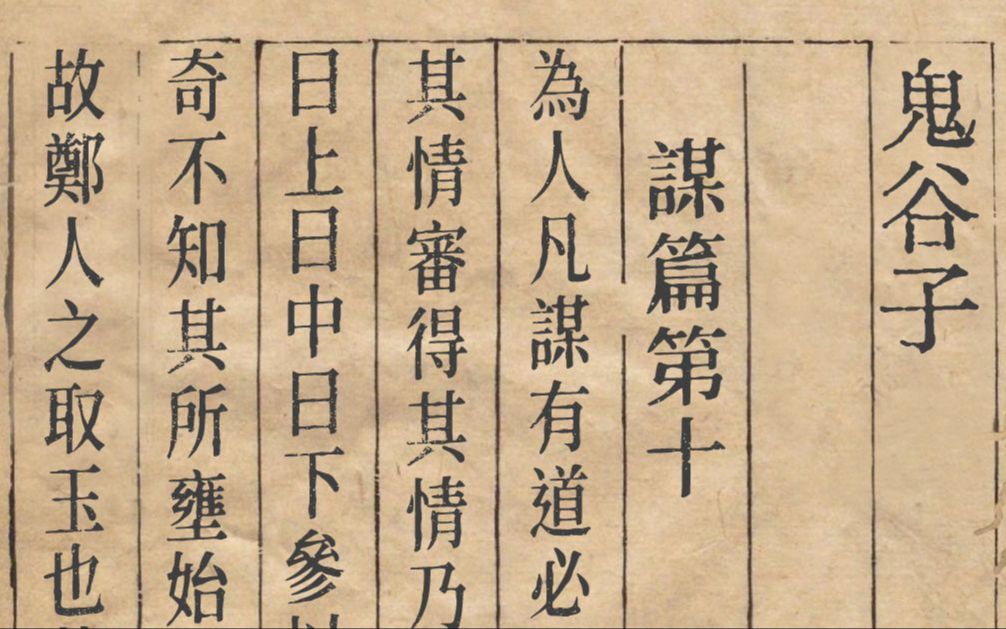 鬼谷子
謀篇第十
為人凡謀有道必
其情審得其情乃
日上日中日下參
奇不知其所壅始
故鄭人之取玉也